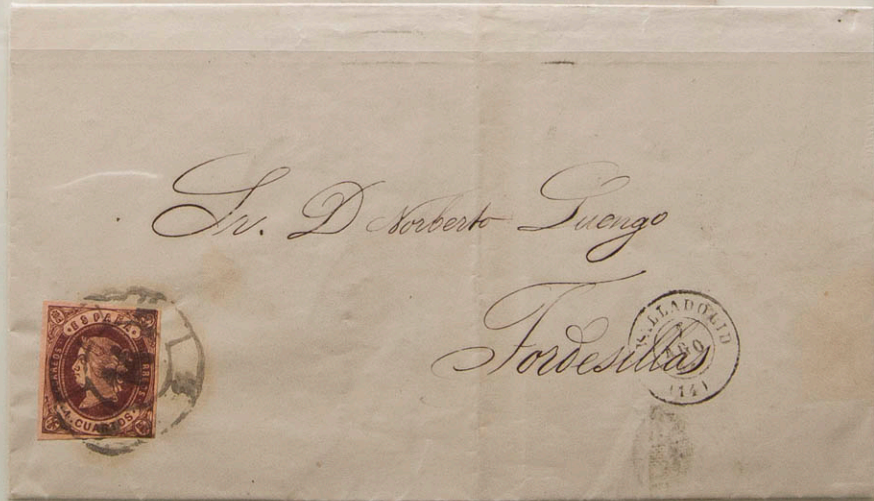 Sr. D Norberto Luengo
Tordesillas
VALLADOLID
AGO
(14)
ESPAÑA
4 CUARTOS